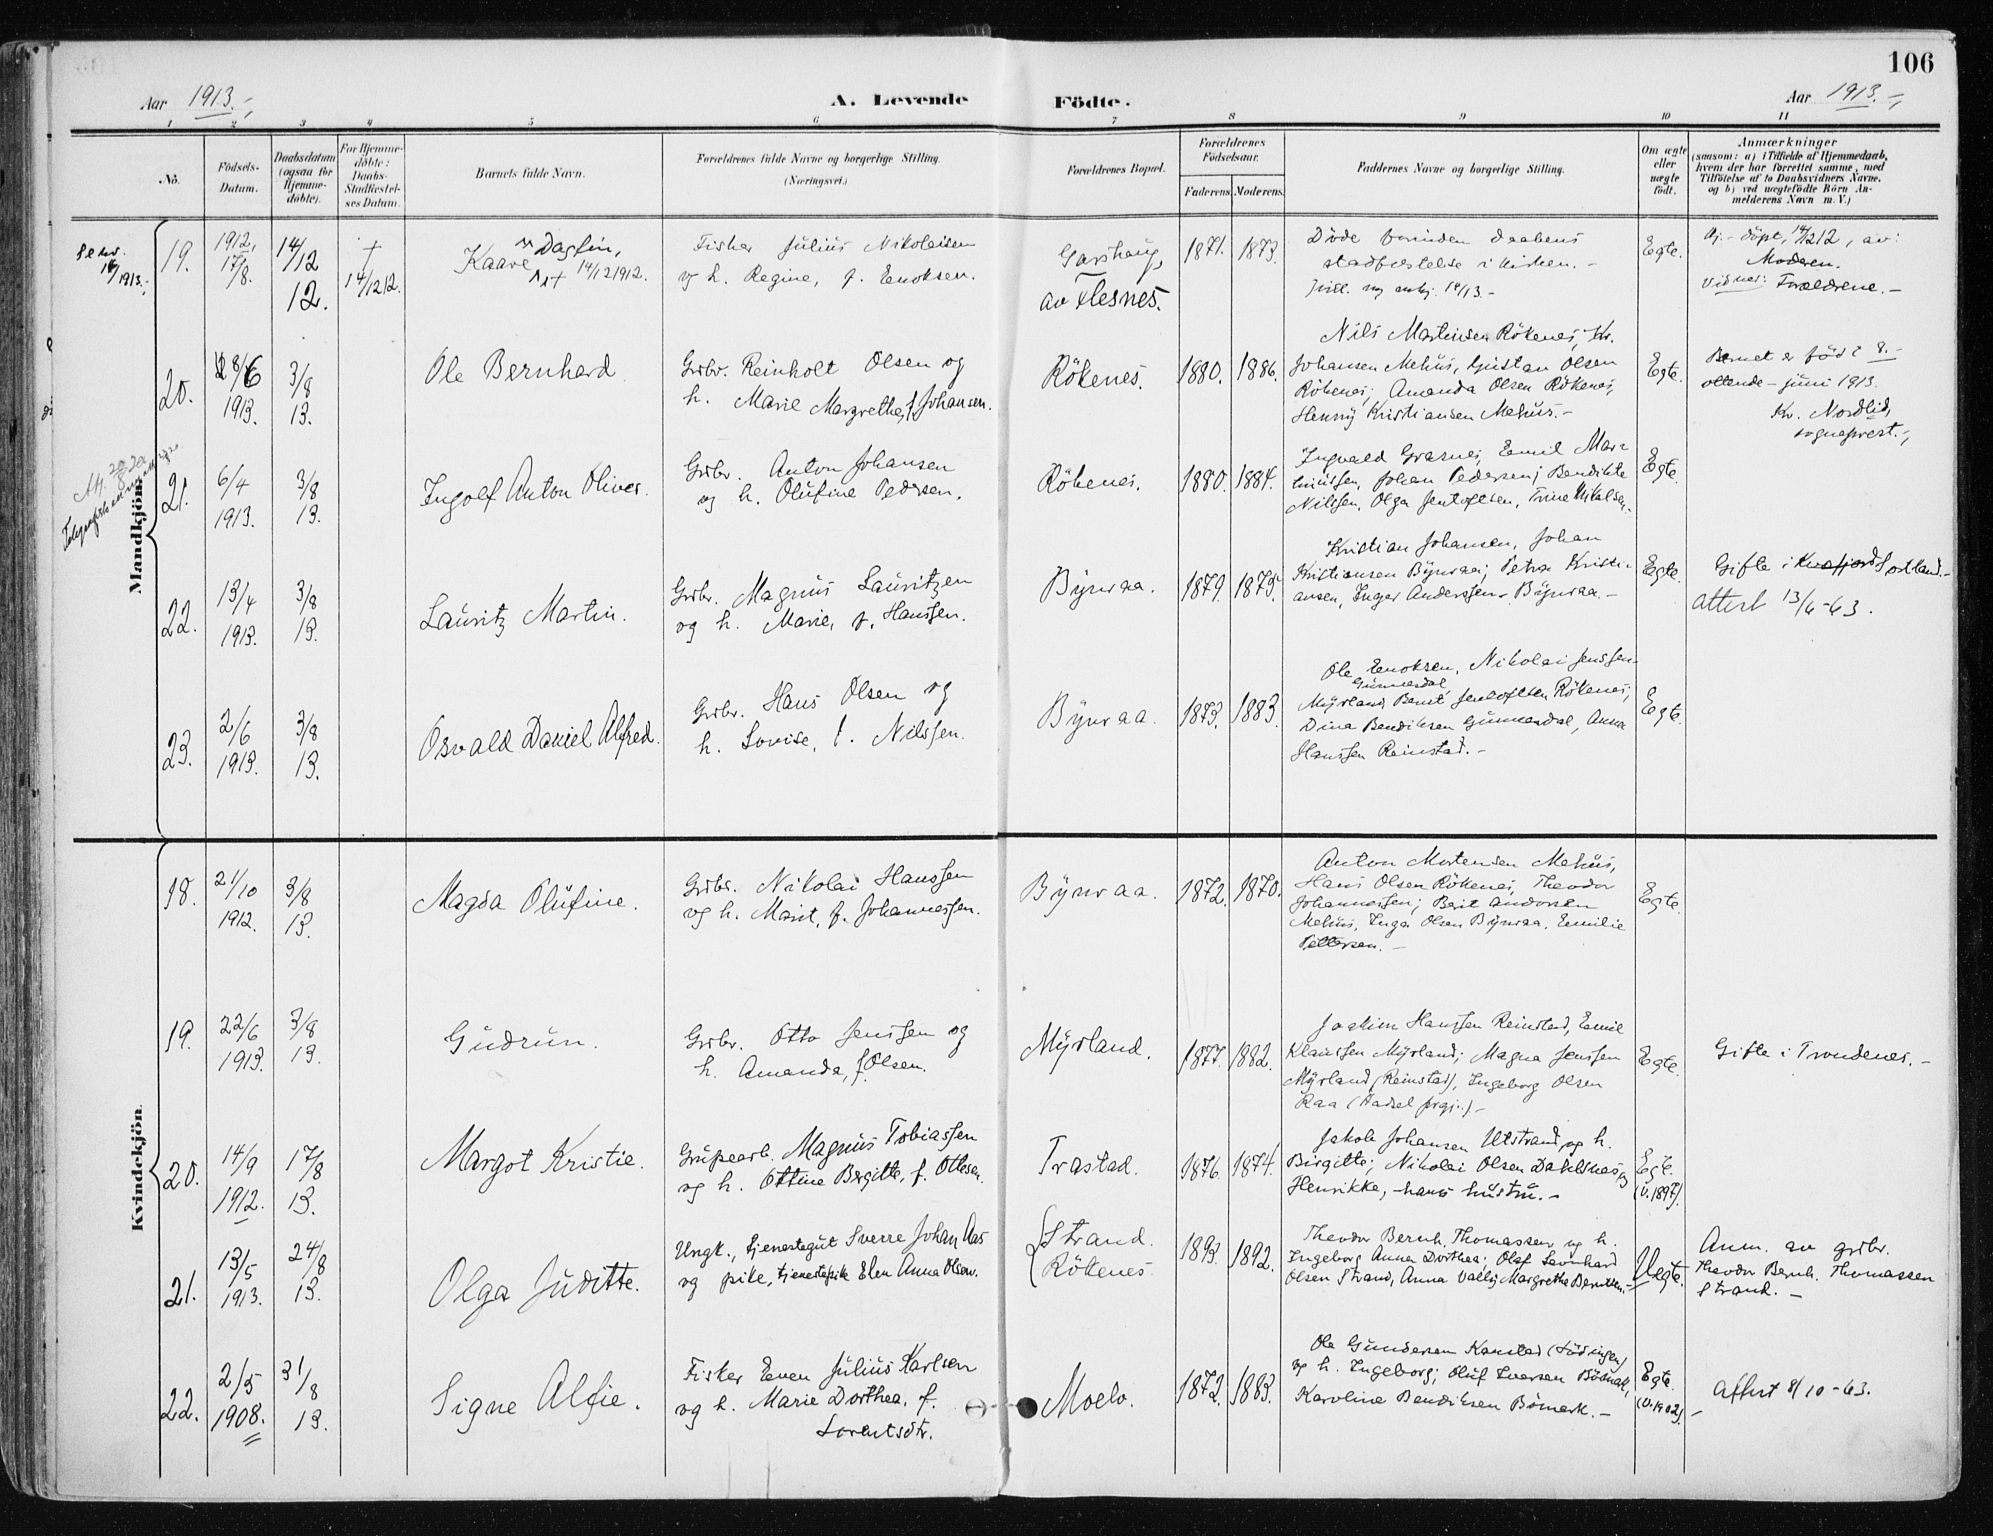 106
Aar 1913.-,
A. Levende Födte.
Aar 1913.-,
1 2 3 4 5 6 7 8 9 10 11
No.
Födsels-
Datum.
Daabsdatum
(ogsaa for
Hjemme-
döbte).
For Hjemme-
döbte:
Daabs-
Stadfæstel-
ses Datum.
Barnets fulde Navn.
Forældrenes fulde Navne og borgerlige Stilling.
(Næringsvei.)
Forældrenes Bopæl.
Forældrenes
Födselsaar.
Faderens. Moderens.
Faddernes Navne og borgerlige Stilling.
Om ægte
eller
uægte
födt.
Anmærkninger
(saasom: a) i Tilfælde af Hjemmedaab,
hvem der har forrettet samme, med
Tilföielse af to Daabsvidners Navne.
og b) ved uægtefödte Börn An-
melderens Navn m. V.)
Mandkjön.
19.
1912,
17/8.
14/12
12.
+
14/12 12.
Kaare Dagfin,
14/12 1912.
Fisker Julius Nikolaisen
og h. Regine, f. Enoksen.
Garshaug,
av Flesnes.
1871. 1873.
Döde forinden daabens
stadfæstelse i kirken. -
Egte.
Hj.-döpt, 14/12 12, av:
Moderen.
Vidner: Forældrene. -
20.
8/6
1913.
3/8
13.
Ole Bernhard
Grbr. Reinholt Olsen og
h. Marie Margrethe, f. Johansen.
Rökenes.
1880. 1886.
Nils Martinsen Rökenes, Kr.
Johansen Mehus, Gustan Olsen
Rökenes; Amanda Olsen Rökenes,
Henny Kristiansen Mehus. -
Egte.
Barnet er född 8.-
ottende - juni 1913.
Kr. Nordlid,
sogneprest.-,
21.
6/4
1913.
3/8
13.
Ingolf Anton Oliver.
Grbr. Anton Johansen
og h. Olufine Pedersen.
Rökenes.
1880. 1884.
Ingvald Grasnes, Emil Mar-
tinussen, Johan Pedersen; Bendikte
Nilssen, Olga Jentoftsen, Trine Mikalsen.
Egte.
22.
13/4
1913.
3/8
13.
Lauritz Martin.
Grbr. Magnus Lauritzen
og h. Marie, f. Hanssen.
Bynraa.
1879. 1875.
Kristian Johansen, Johan
Kristiansen Bynraa; Petra Kristi-
ansen, Inger Anderssen, Bynraa. -
Egte.
Gifte i Kvæfjord Sortland.-
attest 13/6-63.
23.
2/6
1913.
3/8
13.
Osvald Daniel Alfred.
Grbr. Hans Olsen og
h. Lovise, f. Nilssen.
Bynraa.
1873. 1883.
Ole Enoksen, Nikolai Jenssen
Gunnesdal,
Myrland, Bernt Jentoftsen Rökenes,
Dina Bendiksen Gunnesdal, Anna
Hanssen Reinstad. -
Egte.
Kvindekjön.
18.
21/10
1912.
3/8
13.
Magda Olufine.
Grbr. Nikolai Hanssen
og h. Marit, f. Johannessen.
Bynraa.
1872. 1870.
Anton Mortensen Mehus,
Hans Olsen Rökenes, Theodor
Johannessen; Berit Andersen
Mehus, Inga Olsen Bynraa, Emilie
Pettersen. -
Egte.
19.
22/6
1913.
3/8
13.
Gudrun.
Grbr. Otto Jenssen og
h. Amanda, f. Olsen.
Myrland.
1877. 1882.
Joakim Hanssen Reinstad, Emil
Klaussen Myrland; Magna Jenssen
Myrland (Reinstad), Ingeborg Olsen
Raa (Hadsel prgj.) -
Egte.
Gifte i Trondenes. -
20.
14/9
1912.
17/8
13.
Margot Kristie.
Grubearb. Magnus Tobiassen
og h. Ottine Birgitte, f. Ottesen.
Trastad.
1876. 1874.
Jakob Johansen Utstrand, og h.
Birgitte; Nikolai Olsen Dahlsnes og
Henrikke, hans hustru. -
Egte.
(V. 1897).
21.
13/5
1913.
24/8
13.
Olga Juditte.
Ungk., tjenestegut Sverre Johan Aas
og pike, tjenestepike Elen Anna Olsen.
Strand.
Rökenes.
1893. 1892.
Theodor Bernh. Thomassen og h.
Ingeborg Anna Dorthea; Olaf Leonhard
Olsen Strand, Anna Vally Margrethe Berntsen. -
Uegte.
Anm. av grbr.
Theodor Bernh. Thomassen
Strand. -
22.
2/5
1908.
31/8
13.
Signe Alfie.
Fisker Even Julius Karlsen
og h. Marie Dorthea, f.
Lorentsdtr.
Moelv.
1872. 1883.
Ole Gundersen Kanstad (Lödingen)
og h. Ingeborg; Oluf Iversen Bömark,
Karoline Bendiksen Bömark. -
Egte.
(V. 1902).
Attest 8/10-63.